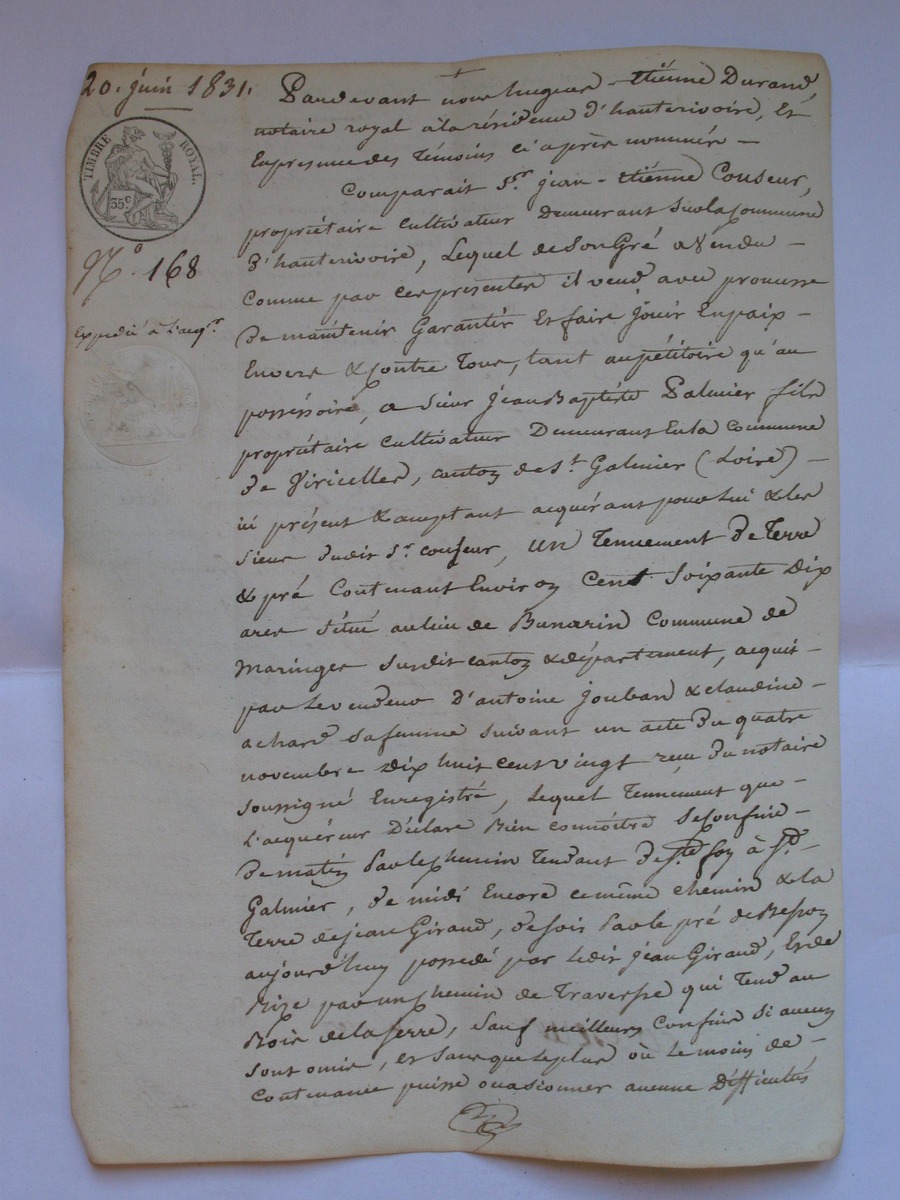 20. juin 1831.
TIMBRE ROYAL.
35c
No. 168
Expédié à l'acqr.
Pardevant nous hugues étiênne Durand,
notaire royal à la résidence d'hauterivoire, Et
En presence des Témoins ci après nommés —
Comparait Sr. jean-étiênne Couseur,
propriétaire cultivateur Demeurant Sur la Commune
d'hauterivoire, Lequel de Son Gré a Vendu —
Comme par ces presentes il vend avec promesse
De maintenir Garantir Et faire jouir En paix —
Envers & Contre Tous, tant au pétitoire qu'au
possessoire, a Sieur Jean Baptiste Palmier fils
propriétaire cultivateur Demeurant En la Commune
de Viricelles, canton de St. Galmier (Loire) —
ici présent & acceptant acquérant pour Lui & les
Siens dudit Sr. couseur, un Tennement de Terre
& pré Contenant Environ Cent Soixante Dix
ares Situé au lieu de Bunarin Commune de
Maringes Susdit canton & département, acquit —
par Le vendeur D'antoine joubard & claudine —
achard Sa femme Suivant un acte Du quatre
novembre Dix huit cent vingt reçu Du notaire
Soussigné Enregistré, Lequel Tennement que —
L'acquéreur Déclare Bien connoître Se Confine —
De matin Par le chemin Tendant De Ste foy à St.
Galmier, De midi Encore ce même chemin & la
Terre de jean Giraud, De soir Par le pré de Besson
aujourd'huy possedé par Ledit jean Giraud, Et de
Bize par un chemin de Traverse qui Tend au
Bois de la ferre, Sauf meilleurs Confins Si aucuns
Sont omis, et Sans que Le plus où Le moins de —
Contenance puisse occasionner aucune Difficultés